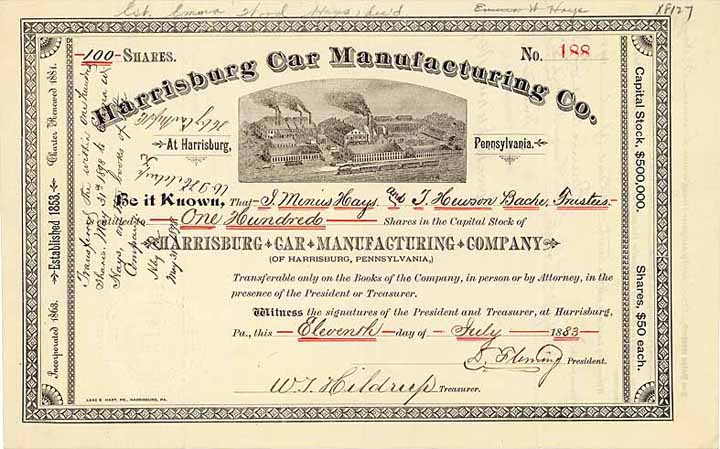 Est. Emma Wood Hays, dec'd
Emma W Hays
X8127
100 SHARES.
No. 188
Harrisburg Car Manufacturing Co.
At Harrisburg,
Pennsylvania.
Be it Known, That I. Minis Hays and T. Hewson Bache, Trustees
entitled to One Hundred Shares in the Capital Stock of
HARRISBURG CAR MANUFACTURING COMPANY
(OF HARRISBURG, PENNSYLVANIA,)
Transferable only on the Books of the Company, in person or by Attorney, in the
presence of the President or Treasurer.
Witness the signatures of the President and Treasurer, at Harrisburg,
Pa., this Eleventh day of July 1883
D. Fleming President.
W.T. Hildrup Treasurer.
Incorporated 1863. Established 1853. Charter Renewed 1881.
Capital Stock, $500,000. Shares, $50 each.
Transferred the within one hundred
Shares May 31st 1898 to Emma W
Hays, on the books of the
Company
May 31 1898
LANE S. HART, PR., HARRISBURG, PA.